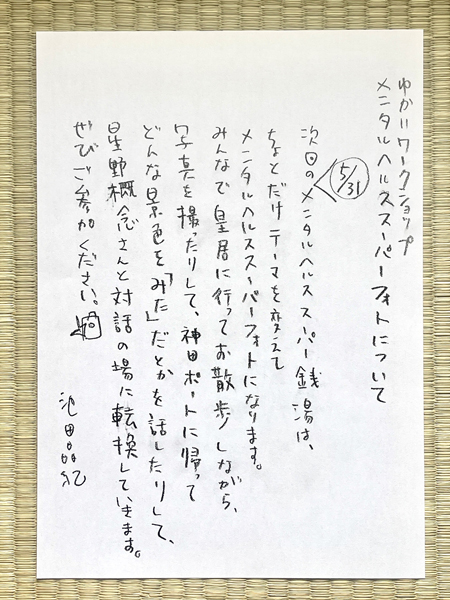 ゆかいワークショップ
メンタルヘルススーパーフォトについて
5/31
次回のメンタルヘルススーパー銭湯は、
ちょとだけテーマを変えて
メンタルヘルススーパーフォトになります。
みんなで皇居に行ってお散歩しながら、
写真を撮ったりして、神田ポートに帰って
どんな景色を「みた」だとかを話したりして、
星野概念さんと対話の場に転換していきます。
ぜひご参加ください。
池田晶紀